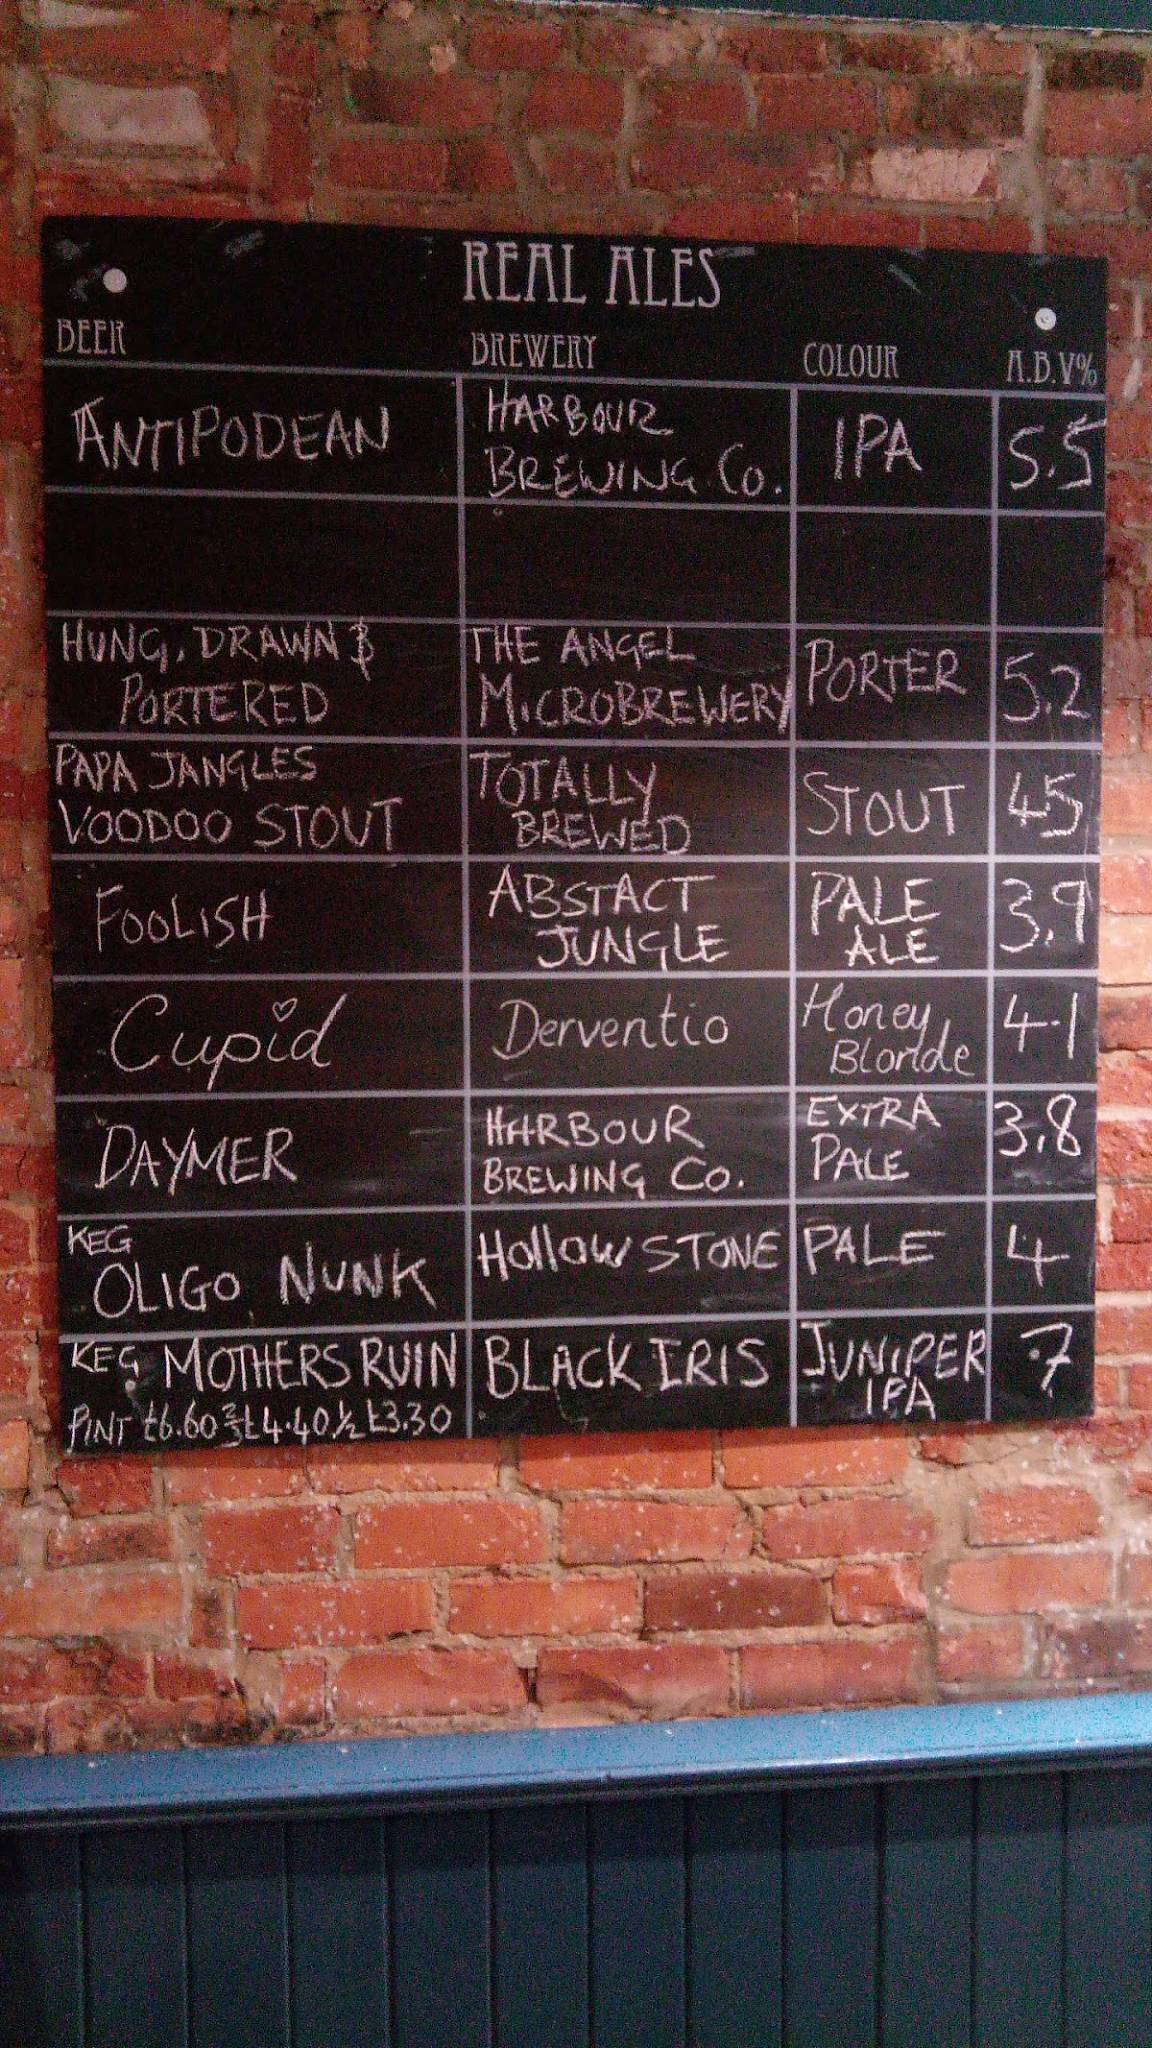 REAL ALES
BEER BREWERY COLOUR A.B.V%
ANTIPODEAN HARBOUR BREWING Co. IPA 5.5
HUNG, DRAWN & PORTERED THE ANGEL MICROBREWERY PORTER 5.2
PAPA JANGLES VOODOO STOUT TOTALLY BREWED STOUT 45
FOOLISH ABSTACT JUNGLE PALE ALE 3.9
Cupid Derventio Honey Blonde 4.1
DAYMER HARBOUR BREWING Co. EXTRA PALE 3.8
KEG OLIGO NUNK Hollow STONE PALE 4
KEG MOTHERS RUIN BLACK IRIS JUNIPER IPA .7
PINT £6.60 ⅔ £4.40 ½ £3.30